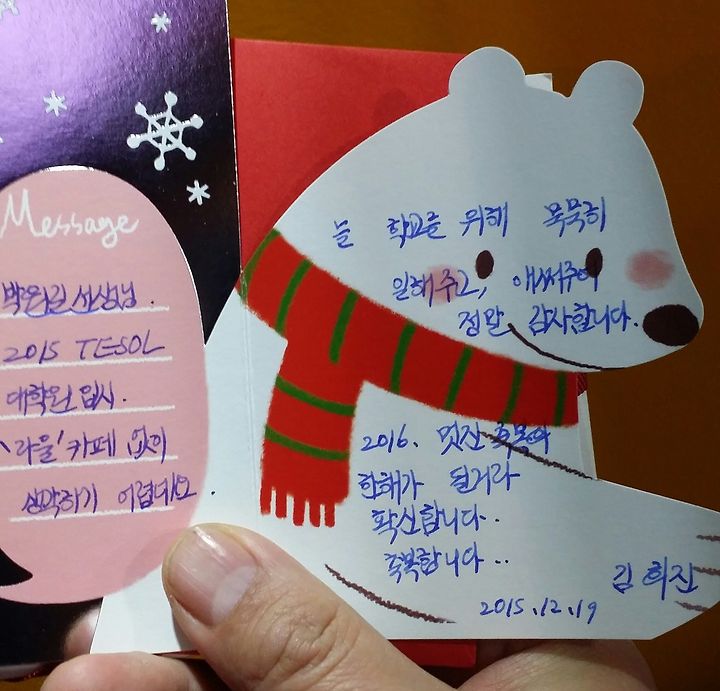 Message
박원길 선생님.
2015 TESOL
대학원 입시.
'라울' 카페 없이
생각하기 어렵네요.
늘 학교를 위해 묵묵히
일해주고, 애써주어
정말 감사합니다.
2016. 멋진 축복의
한해가 될거라
확신합니다.
축복합니다..
김희진
2015.12.19